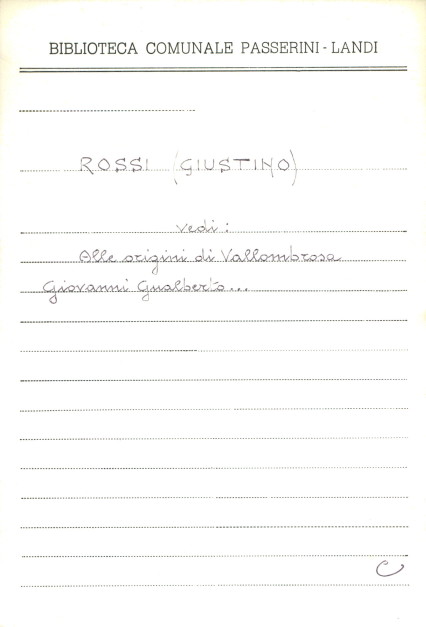 BIBLIOTECA COMUNALE PASSERINI - LANDI
ROSSI (GIUSTINO)
vedi :
Alle origini di Vallombrosa
Giovanni Gualberto...
C